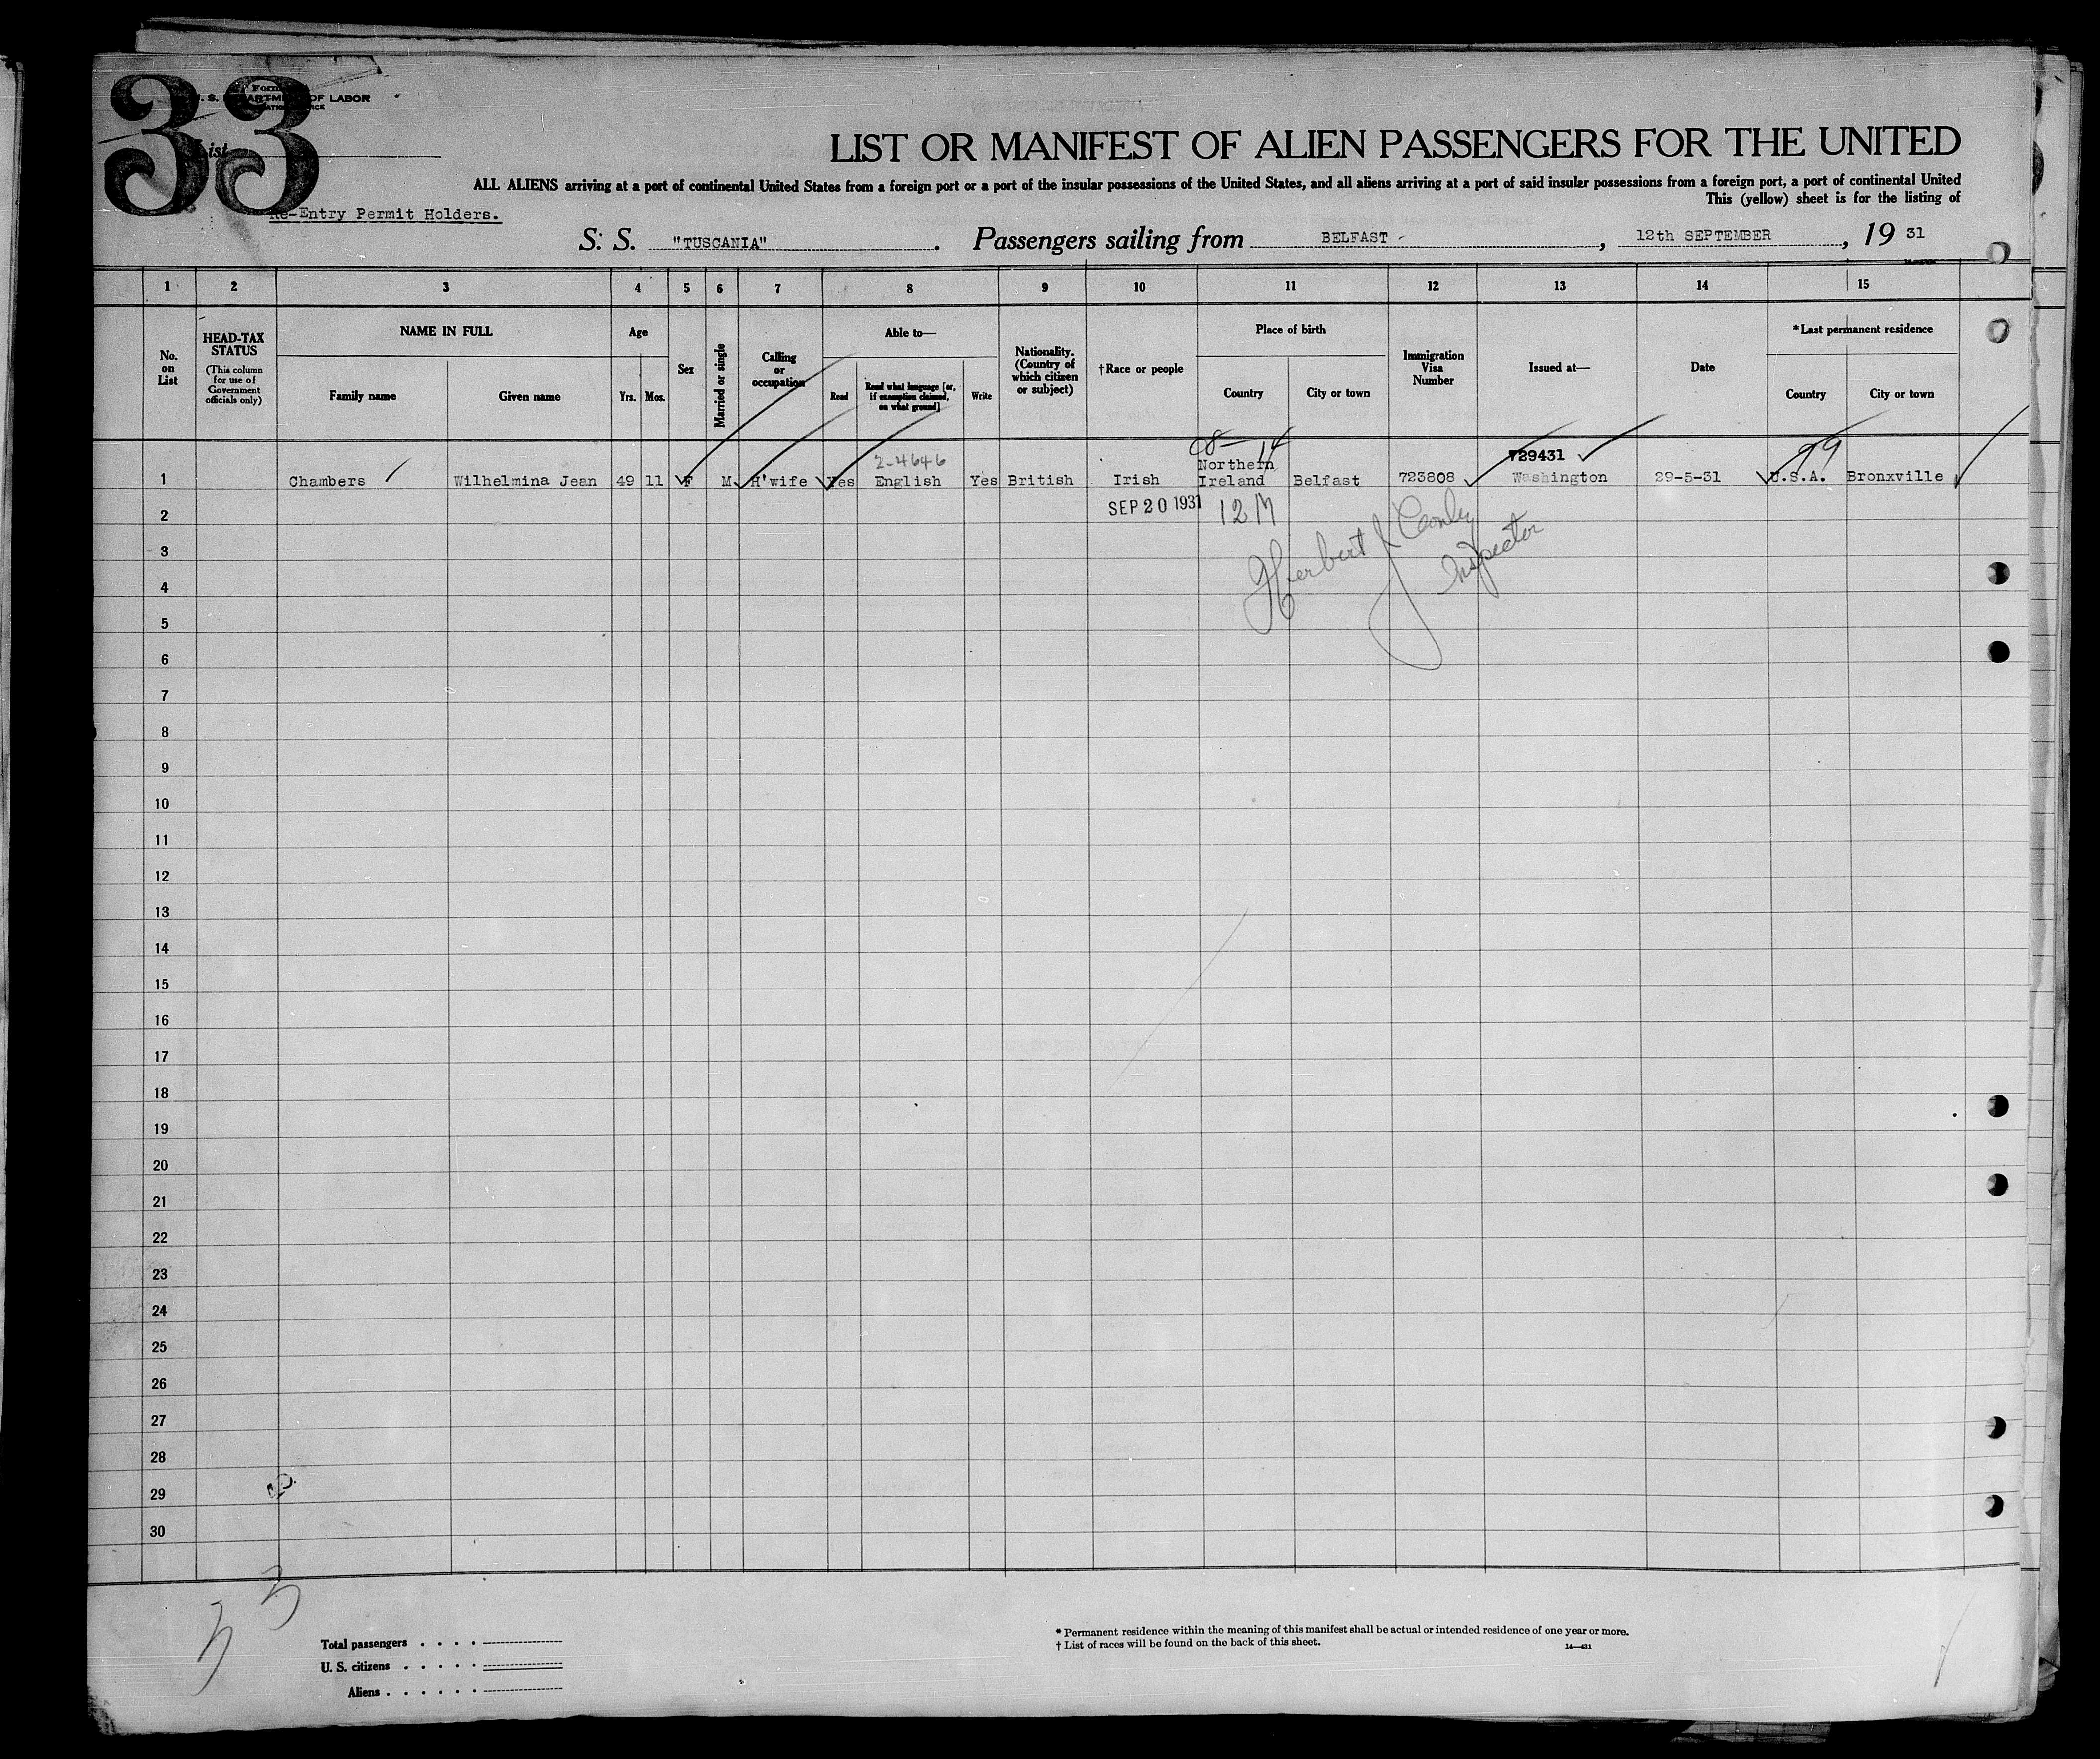 33
Form
U. S. DEPARTMENT OF LABOR
List
LIST OR MANIFEST OF ALIEN PASSENGERS FOR THE UNITED
ALL ALIENS arriving at a port of continental United States from a foreign port or a port of the insular possessions of the United States, and all aliens arriving at a port of said insular possessions from a foreign port, a port of continental United
This (yellow) sheet is for the listing of
Re-Entry Permit Holders.
S. S. "TUSCANIA". Passengers sailing from BELFAST, 12th SEPTEMBER, 19 31
1 2 3 4 5 6 7 8 9 10 11 12 13 14 15
No. on List
HEAD-TAX STATUS
(This column for use of Government officials only)
NAME IN FULL
Family name Given name
Age
Yrs. Mos.
Sex
Married or single
Calling or occupation
Able to—
Read
Read what language [or, if exemption claimed, on what ground]
Write
Nationality. (Country of which citizen or subject)
† Race or people
Place of birth
Country City or town
Immigration Visa Number
Issued at—
Date
* Last permanent residence
Country City or town
08— 14
2-4646
729431
99
1 Chambers Wilhelmina Jean 49 11 F M H'wife Yes English Yes British Irish Northern Ireland Belfast 723808 Washington 29-5-31 U.S.A. Bronxville
SEP 20 1931
12 M
Herbert J Conly
Inspector
2
3
4
5
6
7
8
9
10
11
12
13
14
15
16
17
18
19
20
21
22
23
24
25
26
27
28
29
30
33
Total passengers . . . .
U. S. citizens . . . . .
Aliens . . . . . .
* Permanent residence within the meaning of this manifest shall be actual or intended residence of one year or more.
† List of races will be found on the back of this sheet.
14—431